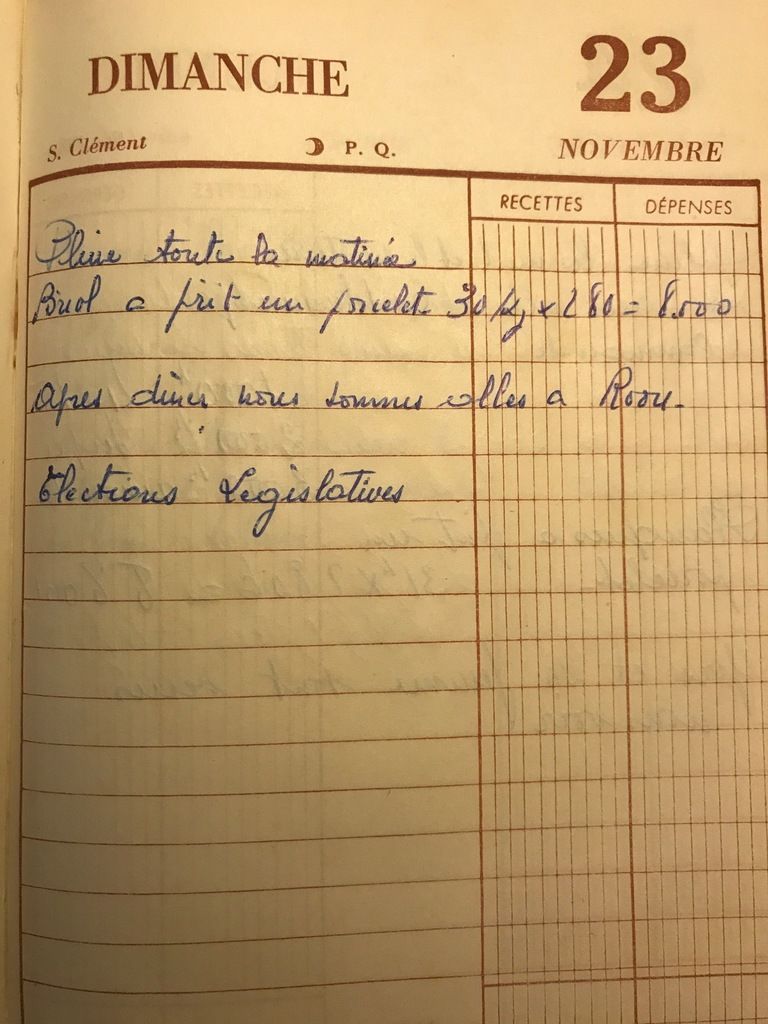 DIMANCHE 23
S. Clément P. Q. NOVEMBRE
RECETTES DÉPENSES
Pluie toute la matinée
a prit un porcelet 30 kg x 280 = 8.000
Apres diner nous sommes alles a
Elections Legislatives